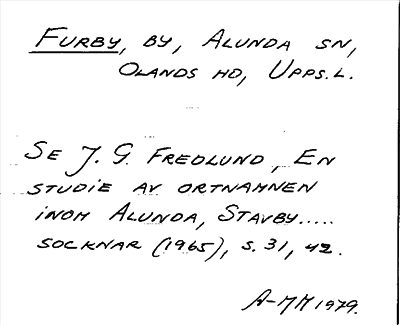 FURBY, BY, ALUNDA SN,
OLANDS HD, UPPS.L.
SE J. G. FREDLUND, EN
STUDIE AV ORTNAMNEN
INOM ALUNDA, STAVBY.....
SOCKNAR (1965), S. 31, 42.
A-MM 1979.